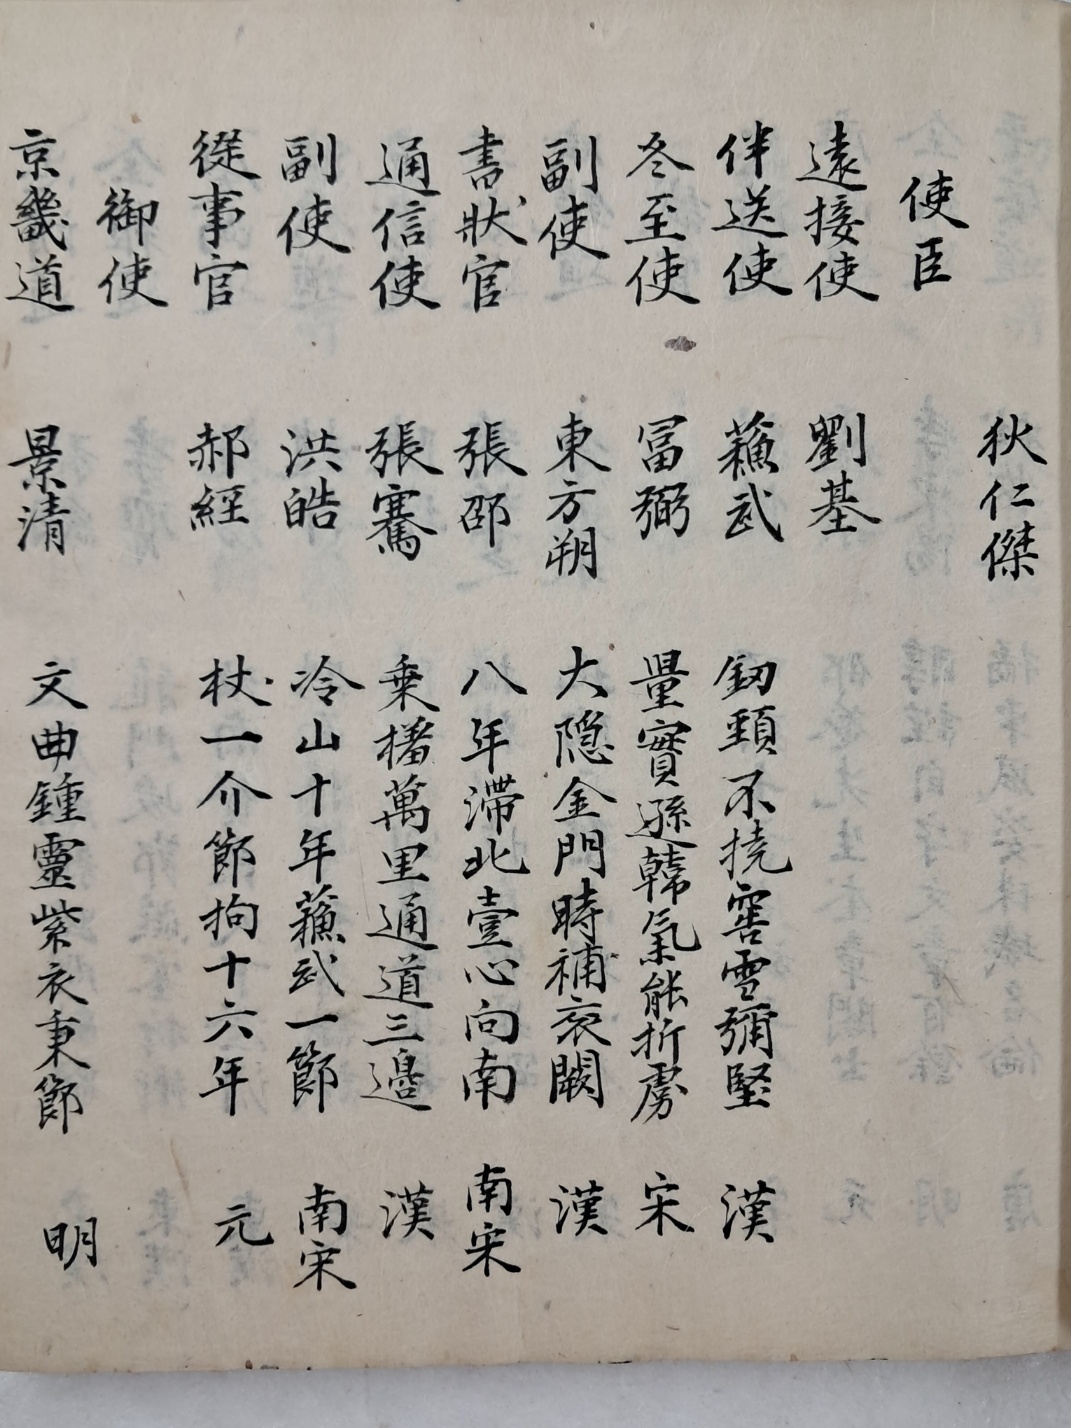 狄仁傑
使臣
遠接使 劉基
伴送使 蘓武 釼頸不撓窖雪彌堅 漢
冬至使 冨弼 量實遜韓氣能折虜 宋
副使 東方朔 大隠金門時補衮闕 漢
書狀官 張邵 八年滯北壹心向南 南宋
通信使 張騫 乗槎萬里通道三邉 漢
副使 洪皓 冷山十年蘓武一節 南宋
從事官 郝經 杖一介節拘十六年 元
御使
京畿道 景清 文曲鍾靈紫衣秉節 明